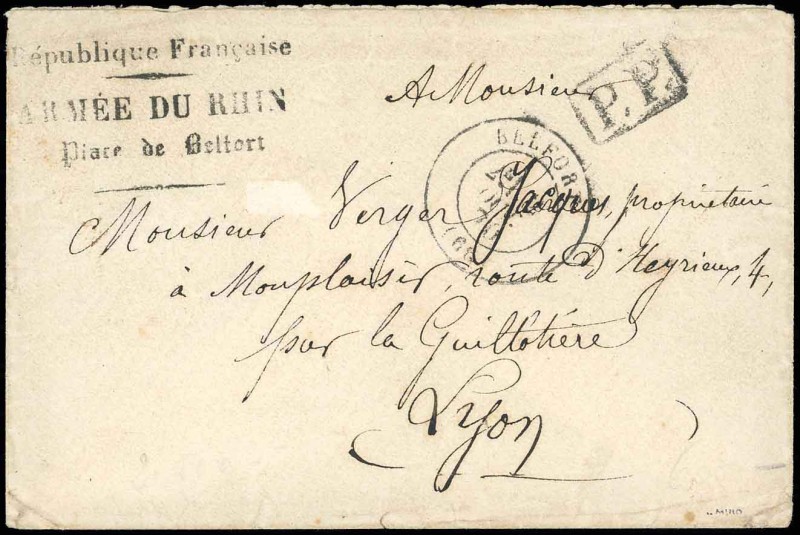 République Française
ARMÉE DU RHIN
Place de Belfort
P.P.
A Monsieur
BELFORT
(66)
Monsieur Verger Jacques, propriétaire
à Monplaisir, route d'Heyrieux, 4,
par la Guillotière
Lyon